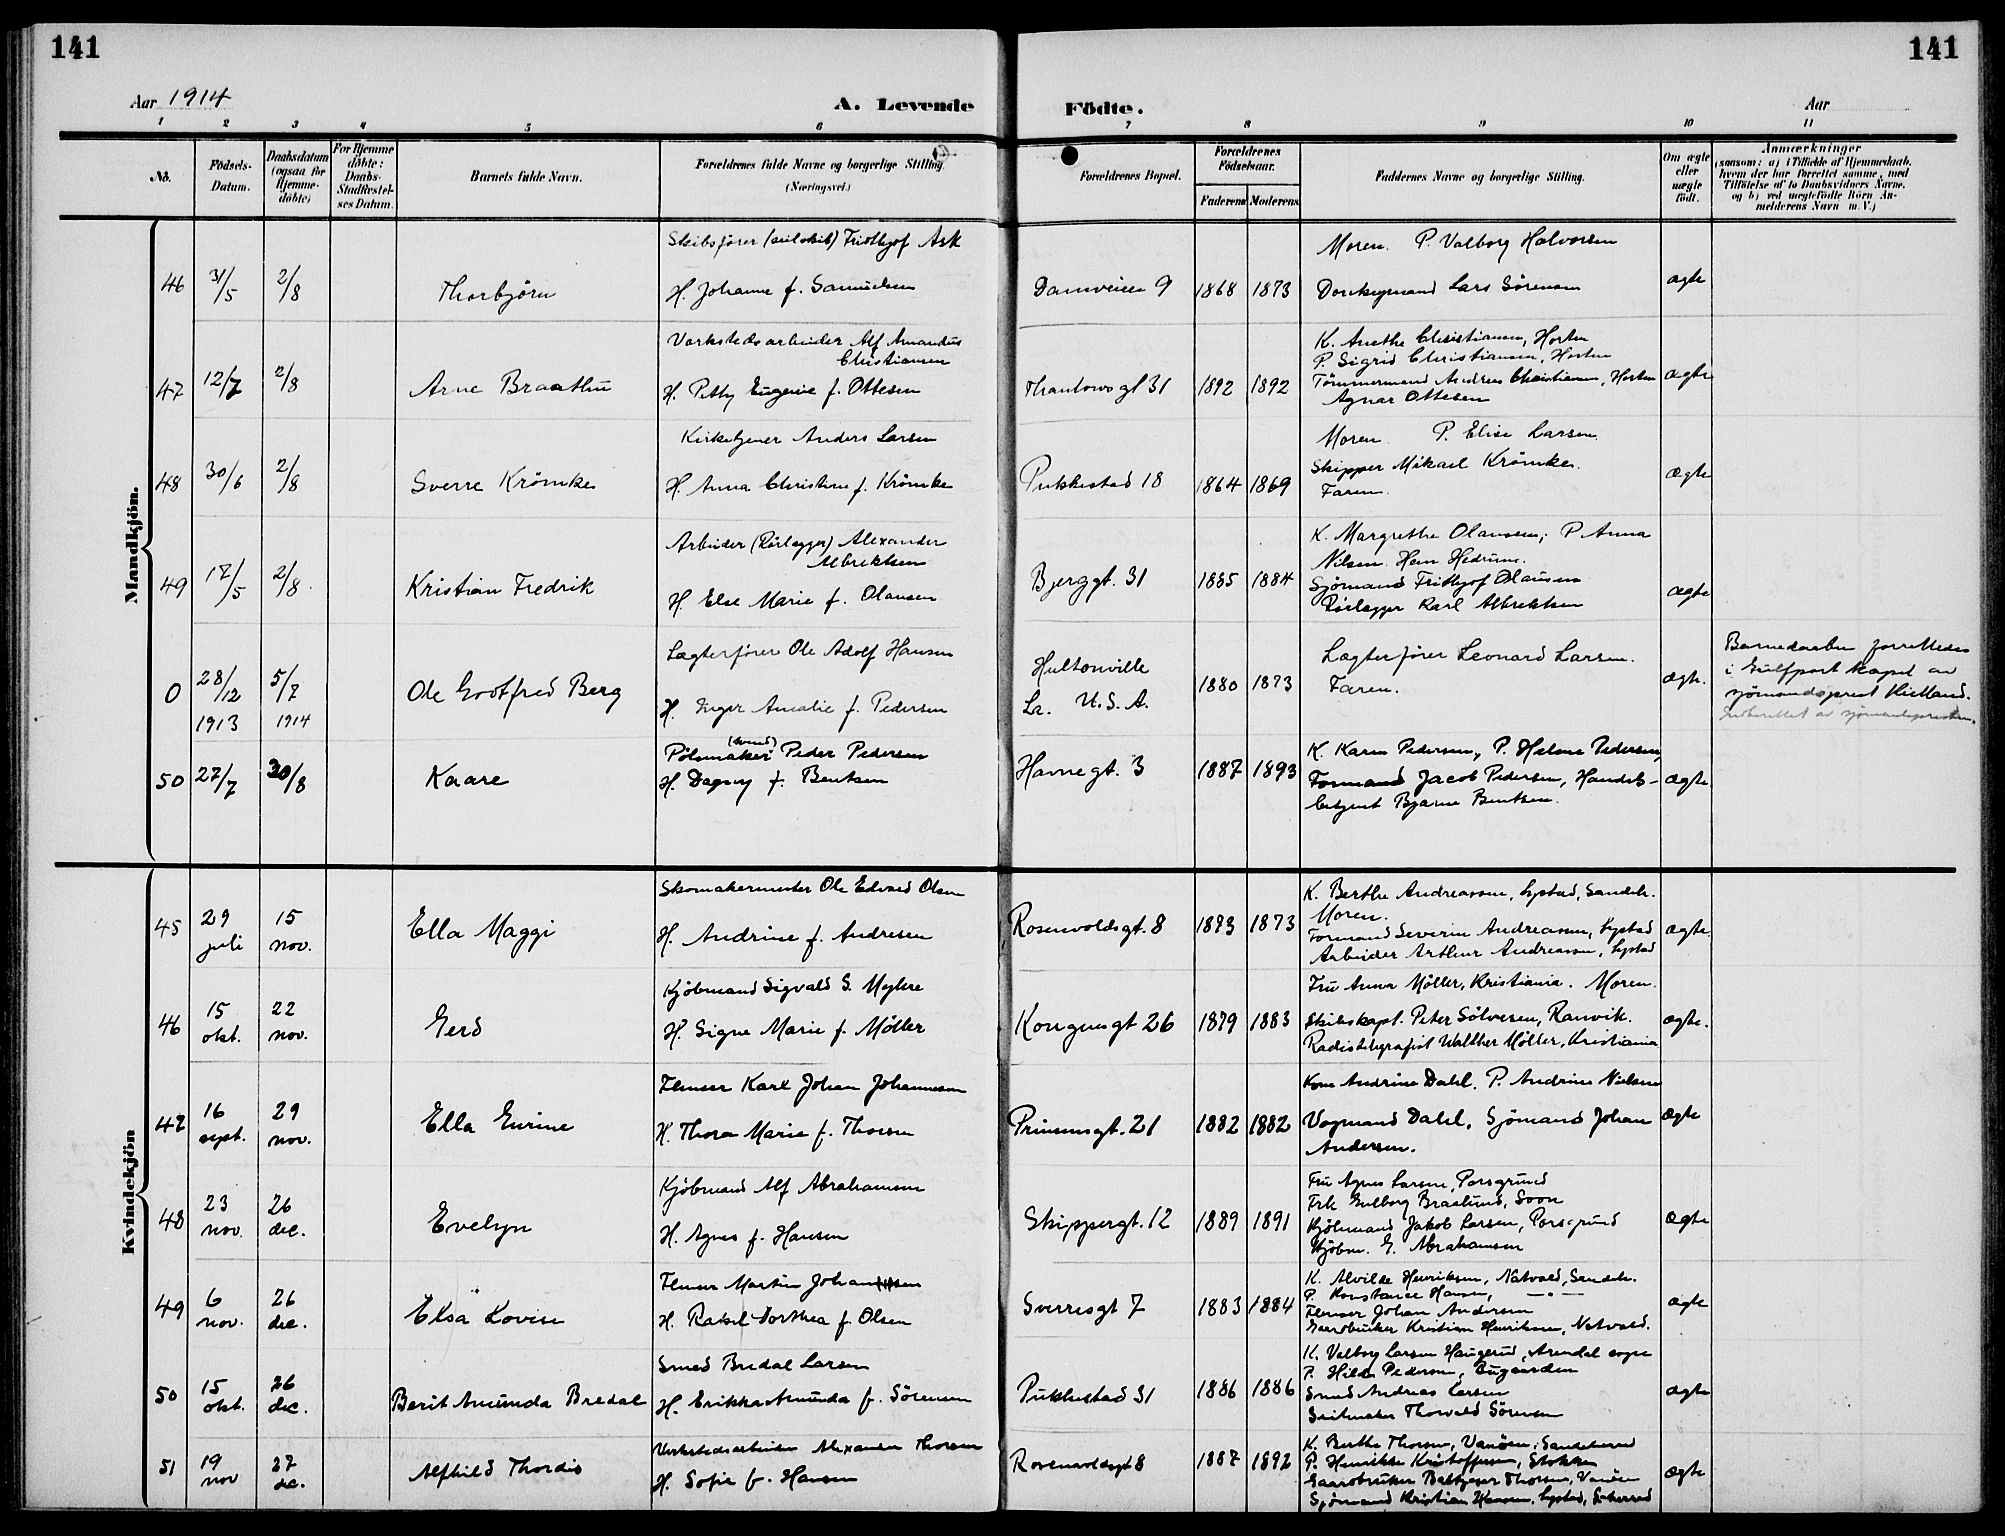 141
141
Aar 1914
A. Levende
Födte.
Aar
1 2 3 4 5 6 7 8 9 10 11
No.
Födsels-Datum.
Daabsdatum (ogsaa for Hjemme-döbte)
For Hjemme döbte: Daabs-Stadfæstel-ses Datum.
Barnets fulde Navn.
Forældrenes fulde Navne og borgerlige Stilling.
(Næringsvei.)
Forældrenes Bopæl.
Forældrenes Födselsaar.
Faderens Moderens
Faddernes Navne og borgerlige Stilling.
Om ægte eller uægte født.
Anmærkninger
(saasom: a) i Tilfælde af Hjemmedaab, hvem der har forrettet samme, med Tilföielse af to Daabsvidners Navne, og b) ved uægtefödte Börn An-melderens Navn m. V.)
Mandkjön.
46 31/5 2/8 Thorbjørn
Skibsfører (seilskib) Fridtjof Ask
H. Johanne f. Samuelsen
Damveien 9 1868 1873
Moren. P. Valborg Halvorsen
Donkeymand Lars Sørensen
ægte
47 12/7 2/8 Arne Braathu
Verkstedsarbeider Alf Amandus
Christiansen
H. Petty Eugenie f. Ottesen
Thaulowsgt 31 1892 1892
K. Anethe Christiansen, Horten
P. Sigrid Christiansen, Horten
Tømmermand Andreas Christiansen, Horten
Agnar Ottesen
ægte
48 30/6 2/8 Sverre Krömke
Kirketjener Anders Larsen
H. Anna Christine f. Krömke
Pukkestad 18 1864 1869
Moren. P. Elise Larsen
Skipper Mikael Krömke.
Faren.
ægte
49 17/5 2/8 Kristian Fredrik
Arbeider (Rørlægger) Alexander
Albrektsen
H. Else Marie f. Olausen
Bjerggt. 31 1885 1884
K. Margrethe Olausen; P. Anna
Nilsen. Hem Hedrum.
Sjømand Fritjof Olausen
Rørlægger Karl Albrektsen
ægte
0 28/12 1913 5/7 1914 Ole Godtfred Berg
Lægterfører Ole Adolf Hansen
H. Inger Amalie f. Pedersen
Hultonville
La. U.S.A. 1880 1873
Lægterfører Leonard Larsen.
Faren.
ægte.
Barnedaaben forrettedes
i Gulfport kapel av
sjømandsprest Kielland.
Indberettet av sjømandspresten.
50 27/7 30/8 Kaare
(svend)
Pølsmaker Peder Pedersen
H. Dagny f. Bentsen
Havnegt. 3 1887 1893
K. Karen Pedersen, P. Helene Pedersen,
Formand Jacob Pedersen, Handels-
betjent Bjarne Bentsen.
ægte
Kvindekjön
45 29 juli 15 nov. Ella Maggi
Skomakermester Ole Edvard Olsen
H. Andrine f. Andresen
Rosenvoldsgt. 8 1873 1873
K. Berthe Andreassen, Lystad, Sandeh.
Moren.
Formand Severin Andreassen, Lystad
Arbeider Arthur Andreassen, Lystad
ægte.
46 15 okt. 22 nov. Gerd
Kjöbmand Sigvald S. Myhre
H. Signe Marie f. Möller
Kongensgt 26 1879 1883
Fru Anna Möller, Kristiania. Moren.
Skibskapt. Peter Sölvesen, Ranvik.
Radiotelegrafist Walther Möller, Kristiania
ægte.
47 16 sept. 29 nov. Ella Eurine
Flenser Karl Johan Johannessen
H. Thora Marie f. Thorsen
Prinsensgt. 21 1882 1882
Kone Andrine Dahl. P. Andrine Nielsen
Vognmand Dahl, Sjömand Johan
Andersen.
ægte
48 23 nov. 26 dec. Evelyn
Kjöbmand Alf Abrahamsen
H. Agnes f. Hansen
Skippergt. 12 1889 1891
Fru Agnes Larsen, Porsgrund
Frk Gulborg Braalund, Soon
Kjöbmand Jakob Larsen, Porsgrund
Kjöbm. G. Abrahamsen
ægte
49 6 nov. 26 dec. Elsa Lovise
Flenser Martin Johansen
H. Rakel Dorthea f. Olsen
Sverresgt 7 1883 1884
K. Alvilde Henriksen, Natvald, Sandeh.
P. Konstance Hansen, — " —
Flenser Johan Andersen
Gaardbruker Kristian Henriksen, Natvald.
ægte
50 15 okt. 26 dec. Berit Amunda Bredal
Smed Bredal Larsen
H. Erikka Amunda f. Sörensen
Pukkestad 31 1886 1886
K. Valborg Larsen Haugerud, Arendal sogn
P. Hilda Pedersen, Bugaarden
Smed Andreas Larsen
Seilmaker Thorvald Sörensen
ægte
51 19 nov 27 dec. Alfhild Thordis
Verkstedsarbeider Alexander Thorsen
H. Sofie f. Hansen
Rosenvoldsgt 8 1887 1892
K. Berthe Thorsen, Vanöen, Sandeherred
P. Henrikke Kristoffersen, Stokke
Gaardbruker Baltzar Thorsen, Vanöen
Sjömand Kristian Hansen, Lystad, S.herred
ægte